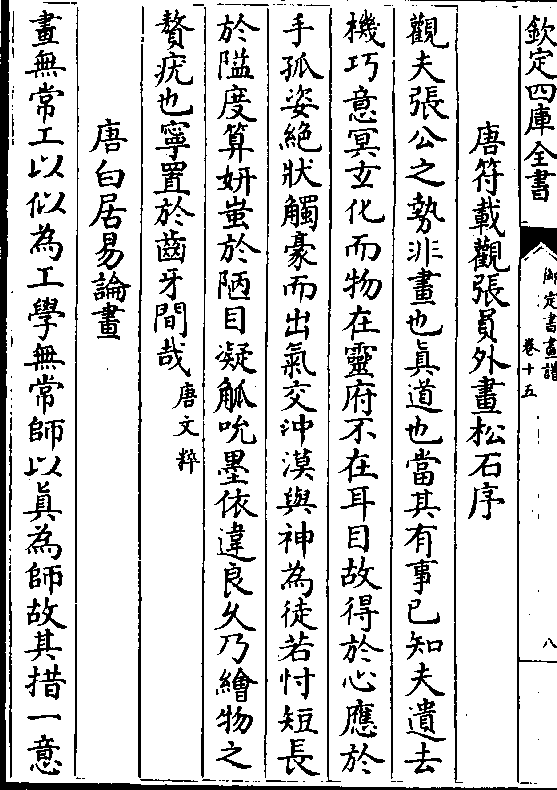 欽定四庫全書
御定書畫譜
卷十五
八
唐符載觀張員外畫松石序
觀夫張公之勢非畫也真道也當其有事已知夫遺去
機巧意冥玄化而物在靈府不在耳目故得於心應於
手孤姿絶狀觸豪而出氣交沖漠與神為徒若忖短長
於隘度算妍蚩於陋目凝觚吮墨依違良久乃繪物之
贅疣也寧置於齒牙間哉唐文粹
唐白居易論畫
畫無常工以似為工學無常師以真為師故其措一意